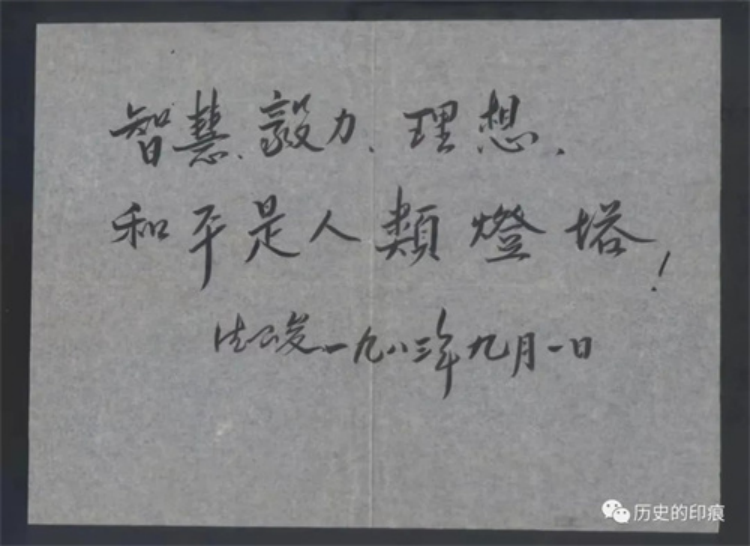 智慧、毅力、理想、
和平是人類燈塔！
一九八三年九月一日
历史的印痕